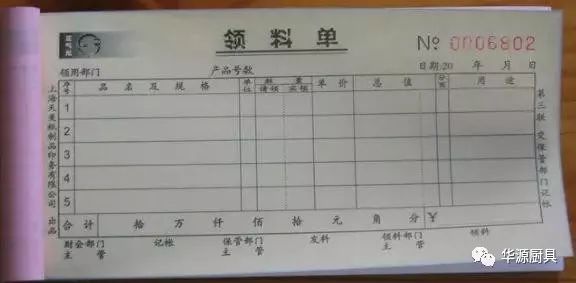 领料单
№ 0006802
领用部门 产品号数 日期:20 年 月 日
序号 品名及规格 单位 数量 请领 实领 单价 总值 分页 用途
1
2
3
4
5
合计 拾 万 仟 佰 拾 元 角 分 ¥
财会部门主管 记帐 保管部门主管 发料 领料部门主管 领料
上海天美纸制品印务有限公司 出品
第三联 交保管部门记帐
华源厨具